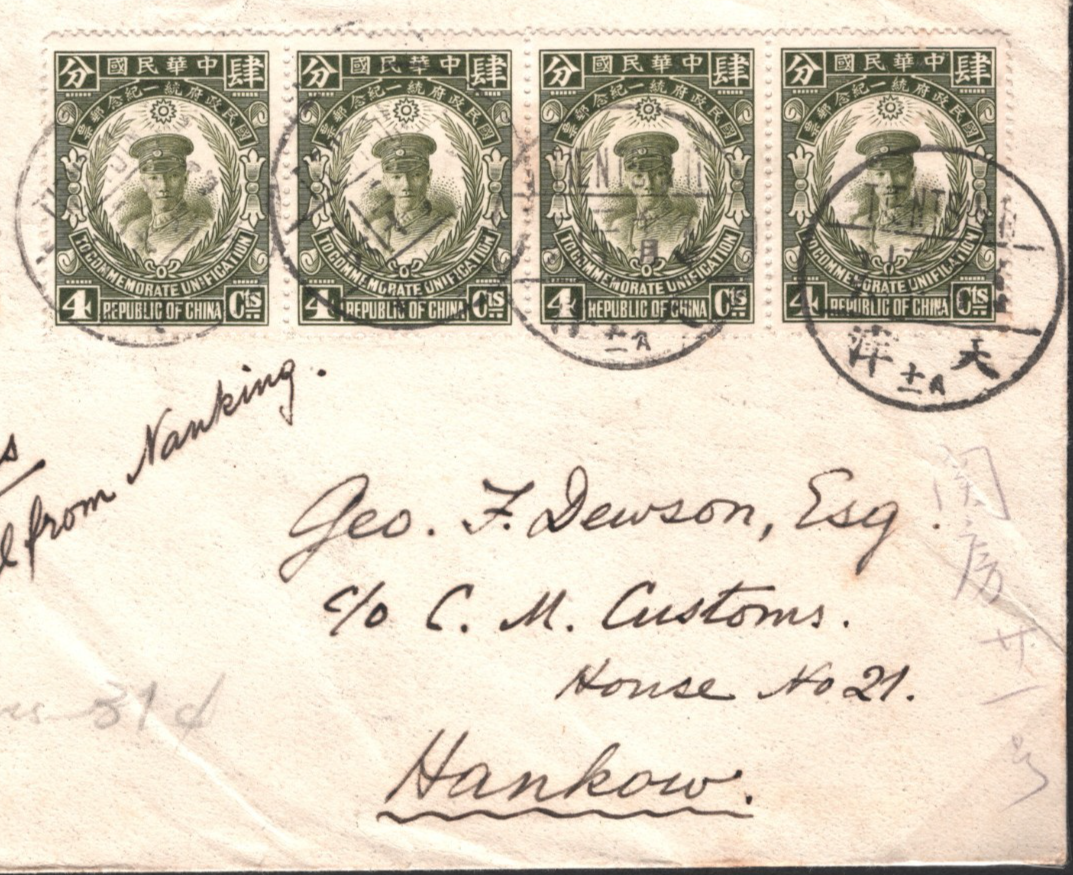 肆 中華民國 分
國民政府統一紀念郵票
TO COMMEMORATE UNIFICATION
4 REPUBLIC OF CHINA Cts
肆 中華民國 分
國民政府統一紀念郵票
TO COMMEMORATE UNIFICATION
4 REPUBLIC OF CHINA Cts
肆 中華民國 分
國民政府統一紀念郵票
TO COMMEMORATE UNIFICATION
4 REPUBLIC OF CHINA Cts
肆 中華民國 分
國民政府統一紀念郵票
TO COMMEMORATE UNIFICATION
4 REPUBLIC OF CHINA Cts
TIENTSIN
天津
from Nanking.
Geo. F. Dewson, Esq.
c/o C. M. Customs.
House No 21.
Hankow.
房廿一号
31